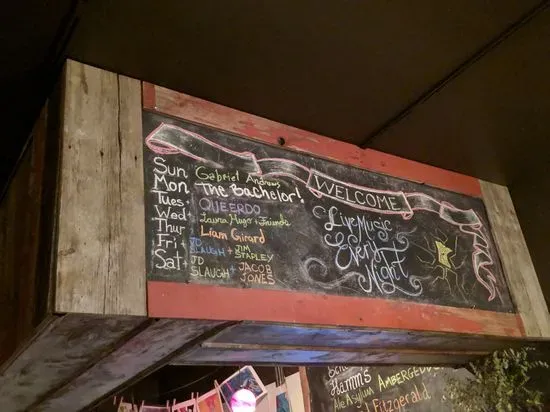 WELCOME
Sun Gabriel Andrews
Mon The Bachelor!
Tues QUEERDO
Wed + Laura Hugo + Friends
Thur Liam Girard
Fri + JD SLAUGH + JIM STAPLEY
Sat + JD SLAUGH + JACOB JONES
Live Music
Every
Night
Hamm's
Ale Asylum AMBERGED
Fitzgerald